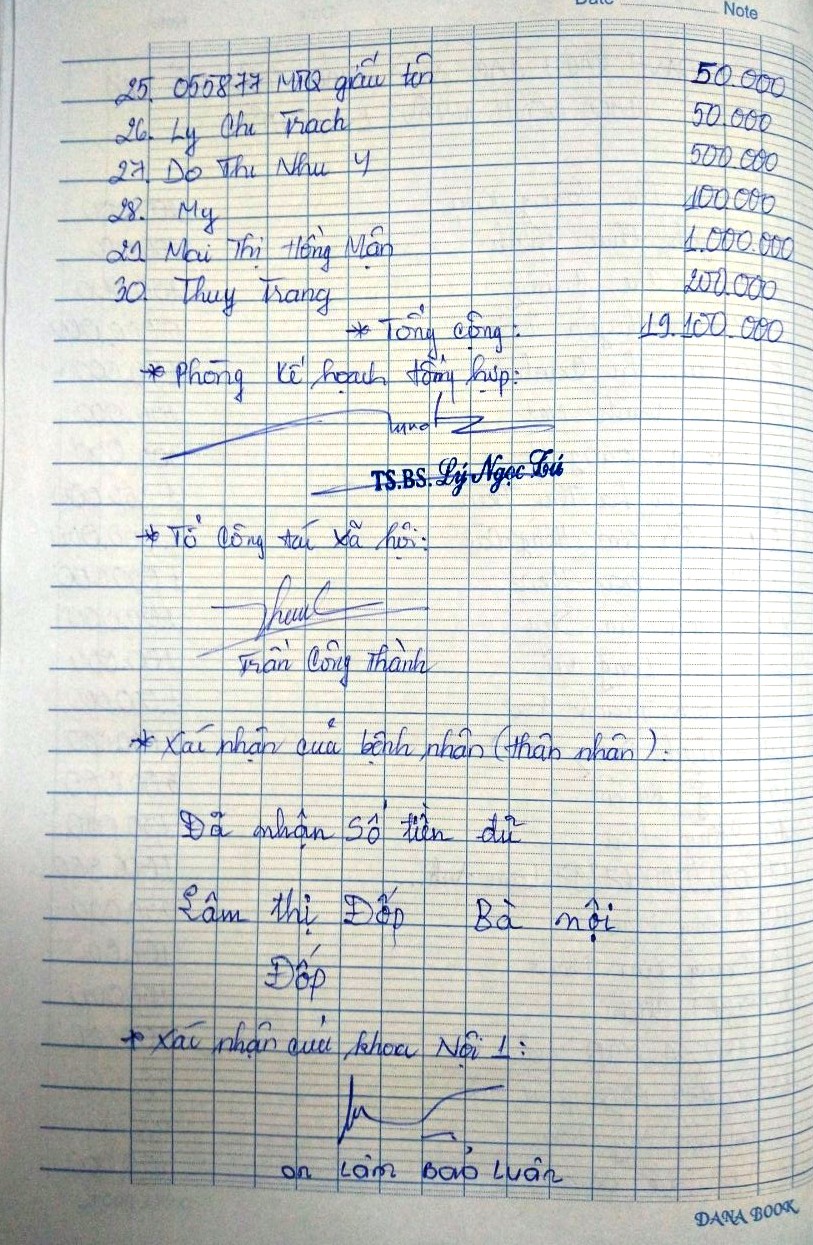 Note
25. 055877 MTQ giấu tên 50.000
26. Ly Chi Trach 50.000
27. Do Thi Nhu Y 500.000
28. My 100.000
29. Mai Thị Hồng Mận 1.000.000
30. Thuy Trang 200.000
* Tổng cộng: 19.100.000
* Phòng Kế hoạch tổng hợp:
TS.BS. Lý Ngọc Tú
* Tổ Công tác Xã hội:
Trần Công Thành
* Xác nhận của bệnh nhân (thân nhân):
Đã nhận Số tiền đủ
Lâm thị Đốp Bà nội
Đốp
* Xác nhận của khoa Nội 1:
Lâm Bảo Luân
DANA BOOK